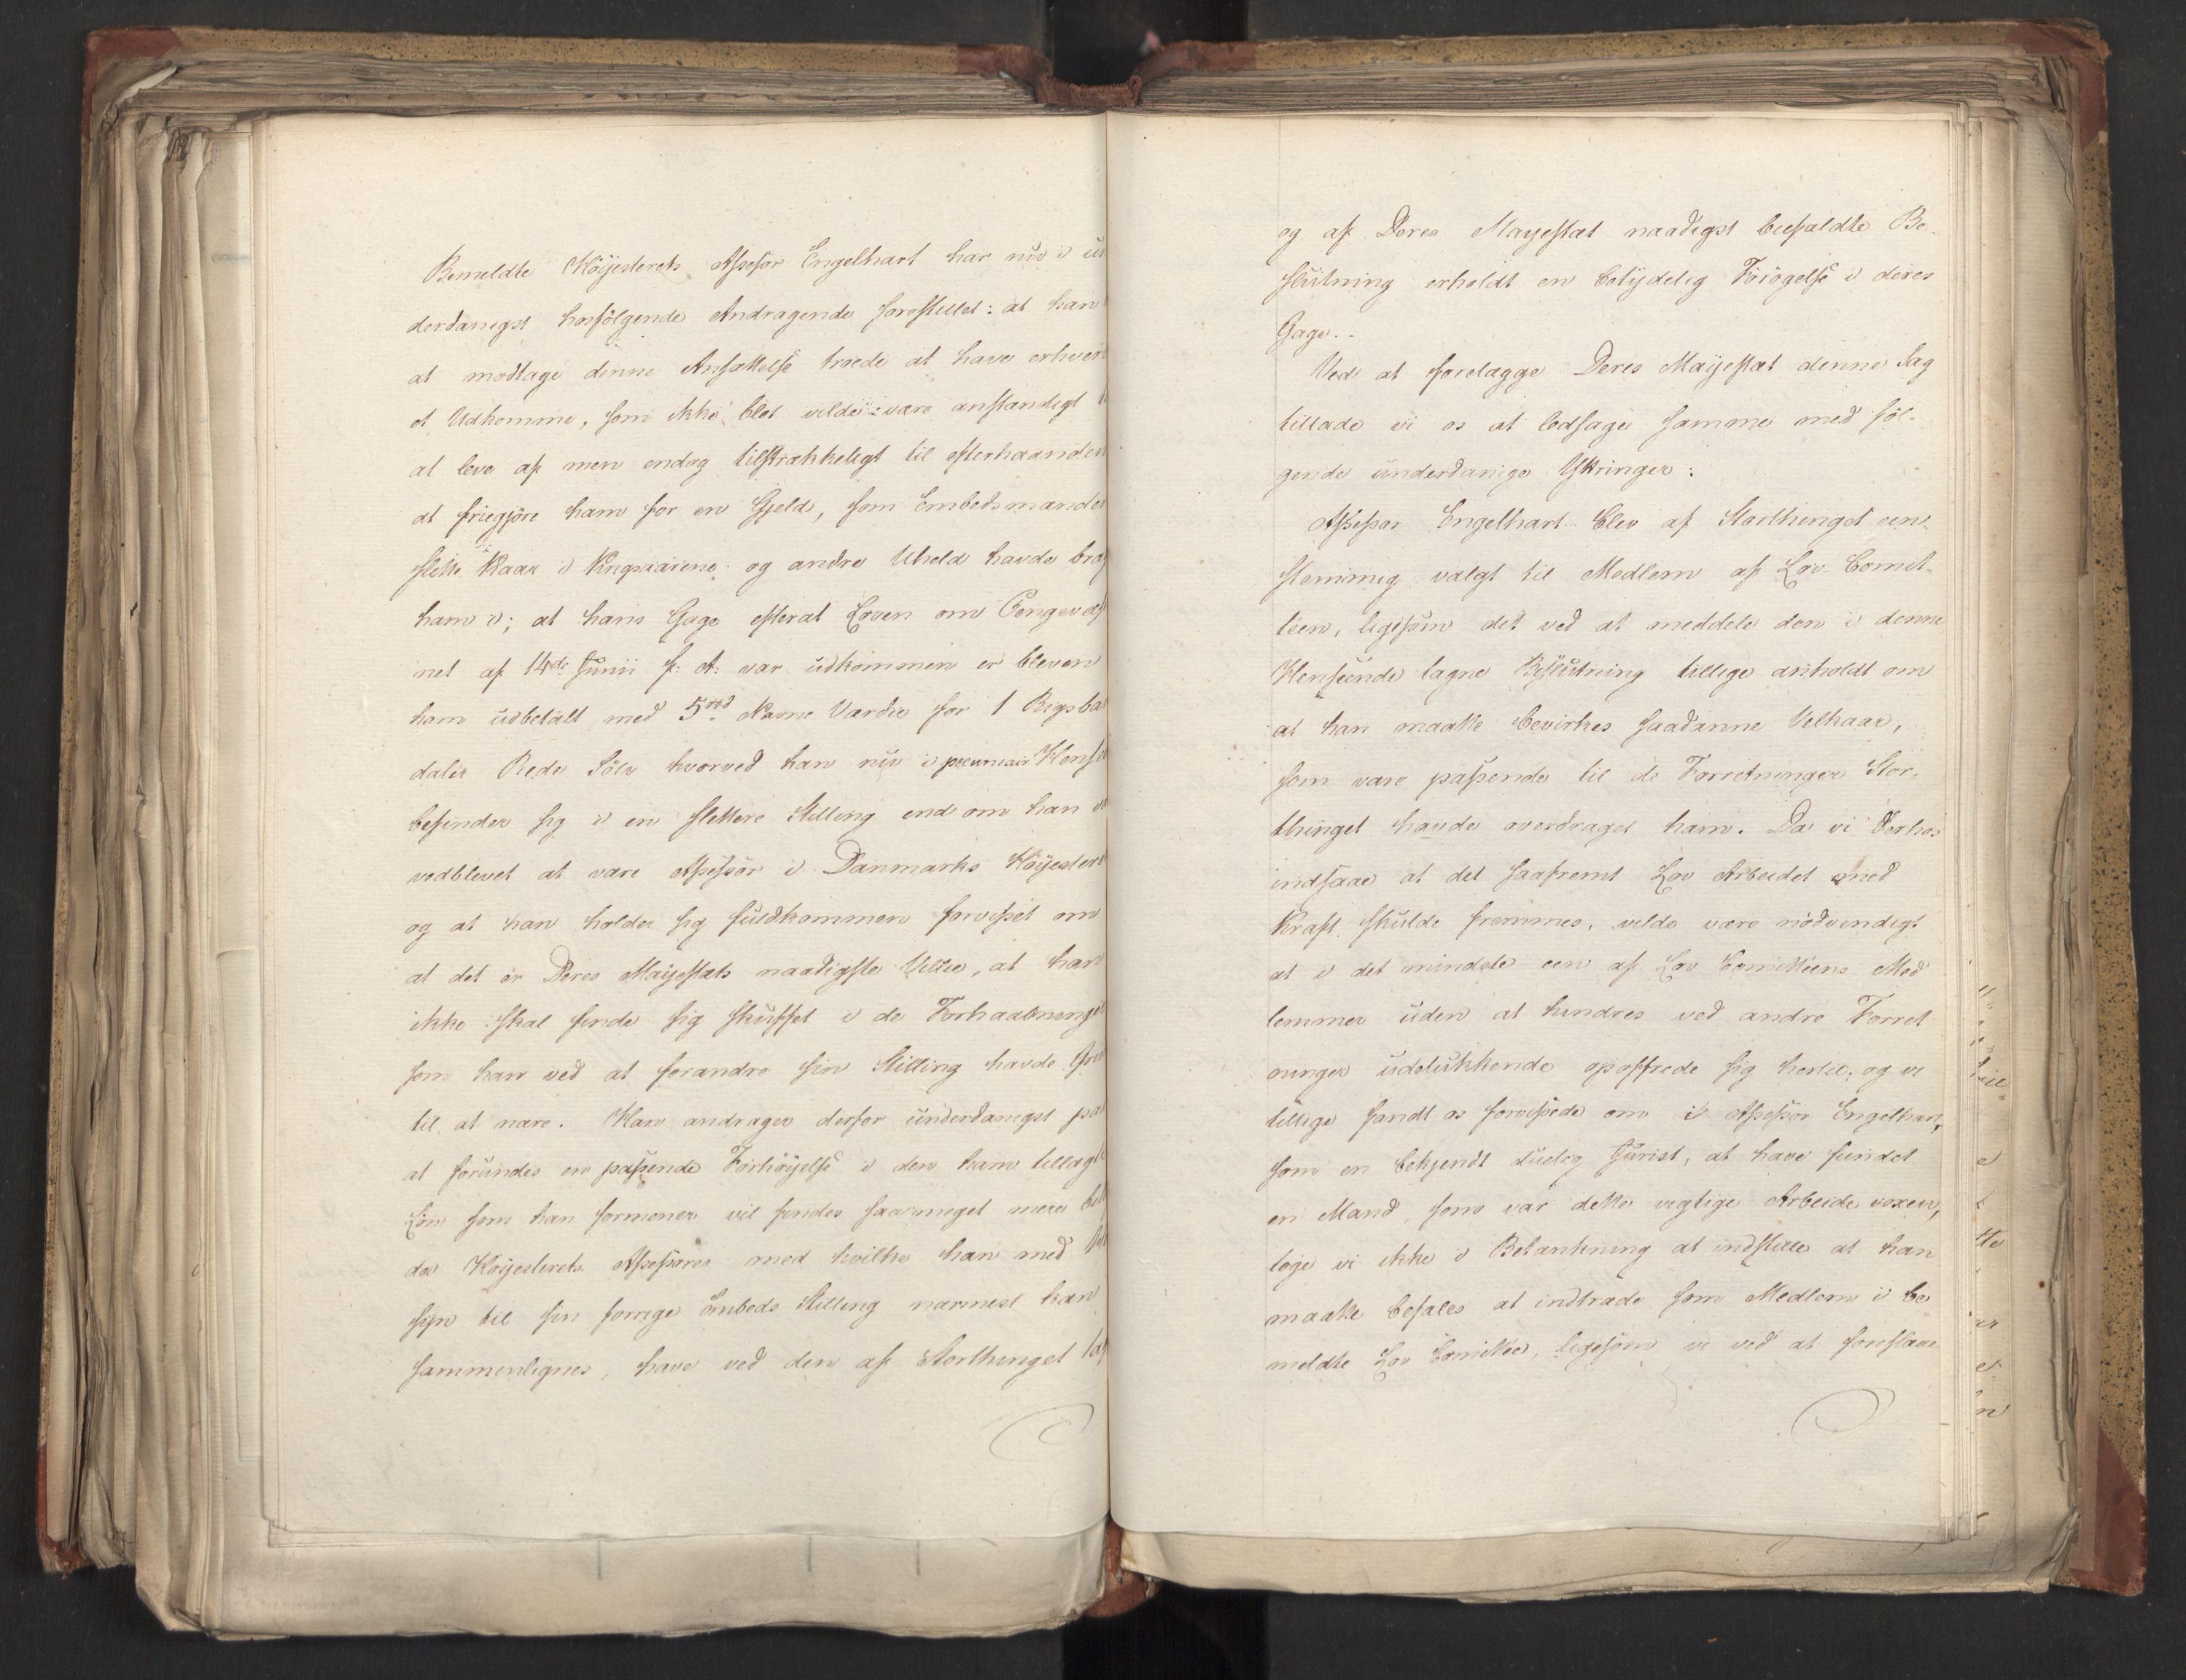 Bemeldte Høÿesterets Assessor Engelhart har nu i un
derdanigst hosfølgende Andragende forestillet: at han
at modtage denne Ansættelse troede at have erhver
et Udkomme, som ikke blot vilde være anstændigt
at leve af men endog tilstrækkeligt til efterhaanden
at friegjøre ham for en Gjeld, som Embedsmande
slette Kaar i Krigsaarene og andre Uheld havde brag
ham i; at hans Gage efterat Loven om Pengevæs
net af 14de Junii f: A: var udkommen er bleven
ham udbetalt med 5 rd Navne Værdie for 1 Rigsba
daler Rede Sølv hvorved han nu i pecuniair Hense
befinder sig i en slettere Stilling end om han
vedblevet at være Assessor i Danmarks Høÿestere
og at han holder sig fuldkommen forvisset om
at det er Deres Maÿestæts naadigste Villie, at han
ikke skal finde sig skuffet i de Forhaabninge
som han ved at forandre sin Stilling havde
til at nære. Han andrager derfor underdanigst paa
at forundes en passende Forhøÿelse i den ham tillagt
Løn som han formener vil findes saameget mere
da Høÿesterets Assessorer med hvilke han med
syn til sin forrige Embeds Stilling nærmest kan
sammenlignes, have ved den af Storthinget
og af Deres Mayestæt naadigst biefaldte Be-
slutning erholdt en betÿdelig Forøgelse i deres
Gage.
Ved at forelægge Deres Maÿestæt denne Sag
tillade vi os at ledsage samme med føl-
gende underdanige Yttringer:
Assessor Engelhart blev af Storthinget een-
stemmig valgt til Medlem af Lov Comit-
téen, ligesom det ved at meddele den i denne
Henseende tagne Beslutning tillige anholdt om
at han maatte bevirkes saadanne Velkaar,
som vare passende til de Forretninger Stor-
thinget havde overdraget ham. Da vi derhos
indsaae at det saafremt Lov Arbeidet med
Kraft skulde fremmes, vilde være nødvendigt
at i det mindste een af Lov Comitteens Med
lemmer uden at hindres ved andre Forret
ninger udelukkende opoffrede sig hertil; og vi
tillige fandt os forvissede om i Assessor Engelhart,
som en bekjendt duelig Jurist, at have fundet
en Mand, som var dette vigtige Arbeide voxen,
toge vi ikke i Betænkning at indstille at han
maatte befales at indtræde som Medlem i be
meldte Lov Comittee, ligesom vi ved at foreslaae